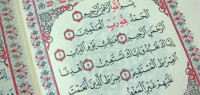 بِسْمِ اللَّهِ الرَّحْمَٰنِ الرَّحِيمِ
الْحَمْدُ لِلَّهِ رَبِّ الْعَالَمِينَ
الرَّحْمَٰنِ الرَّحِيمِ مَالِكِ يَوْمِ الدِّينِ
إِيَّاكَ نَعْبُدُ وَإِيَّاكَ نَسْتَعِينُ اهْدِنَا
الصِّرَاطَ الْمُسْتَقِيمَ صِرَاطَ الَّذِينَ أَنْعَمْتَ
عَلَيْهِمْ غَيْرِ الْمَغْضُوبِ